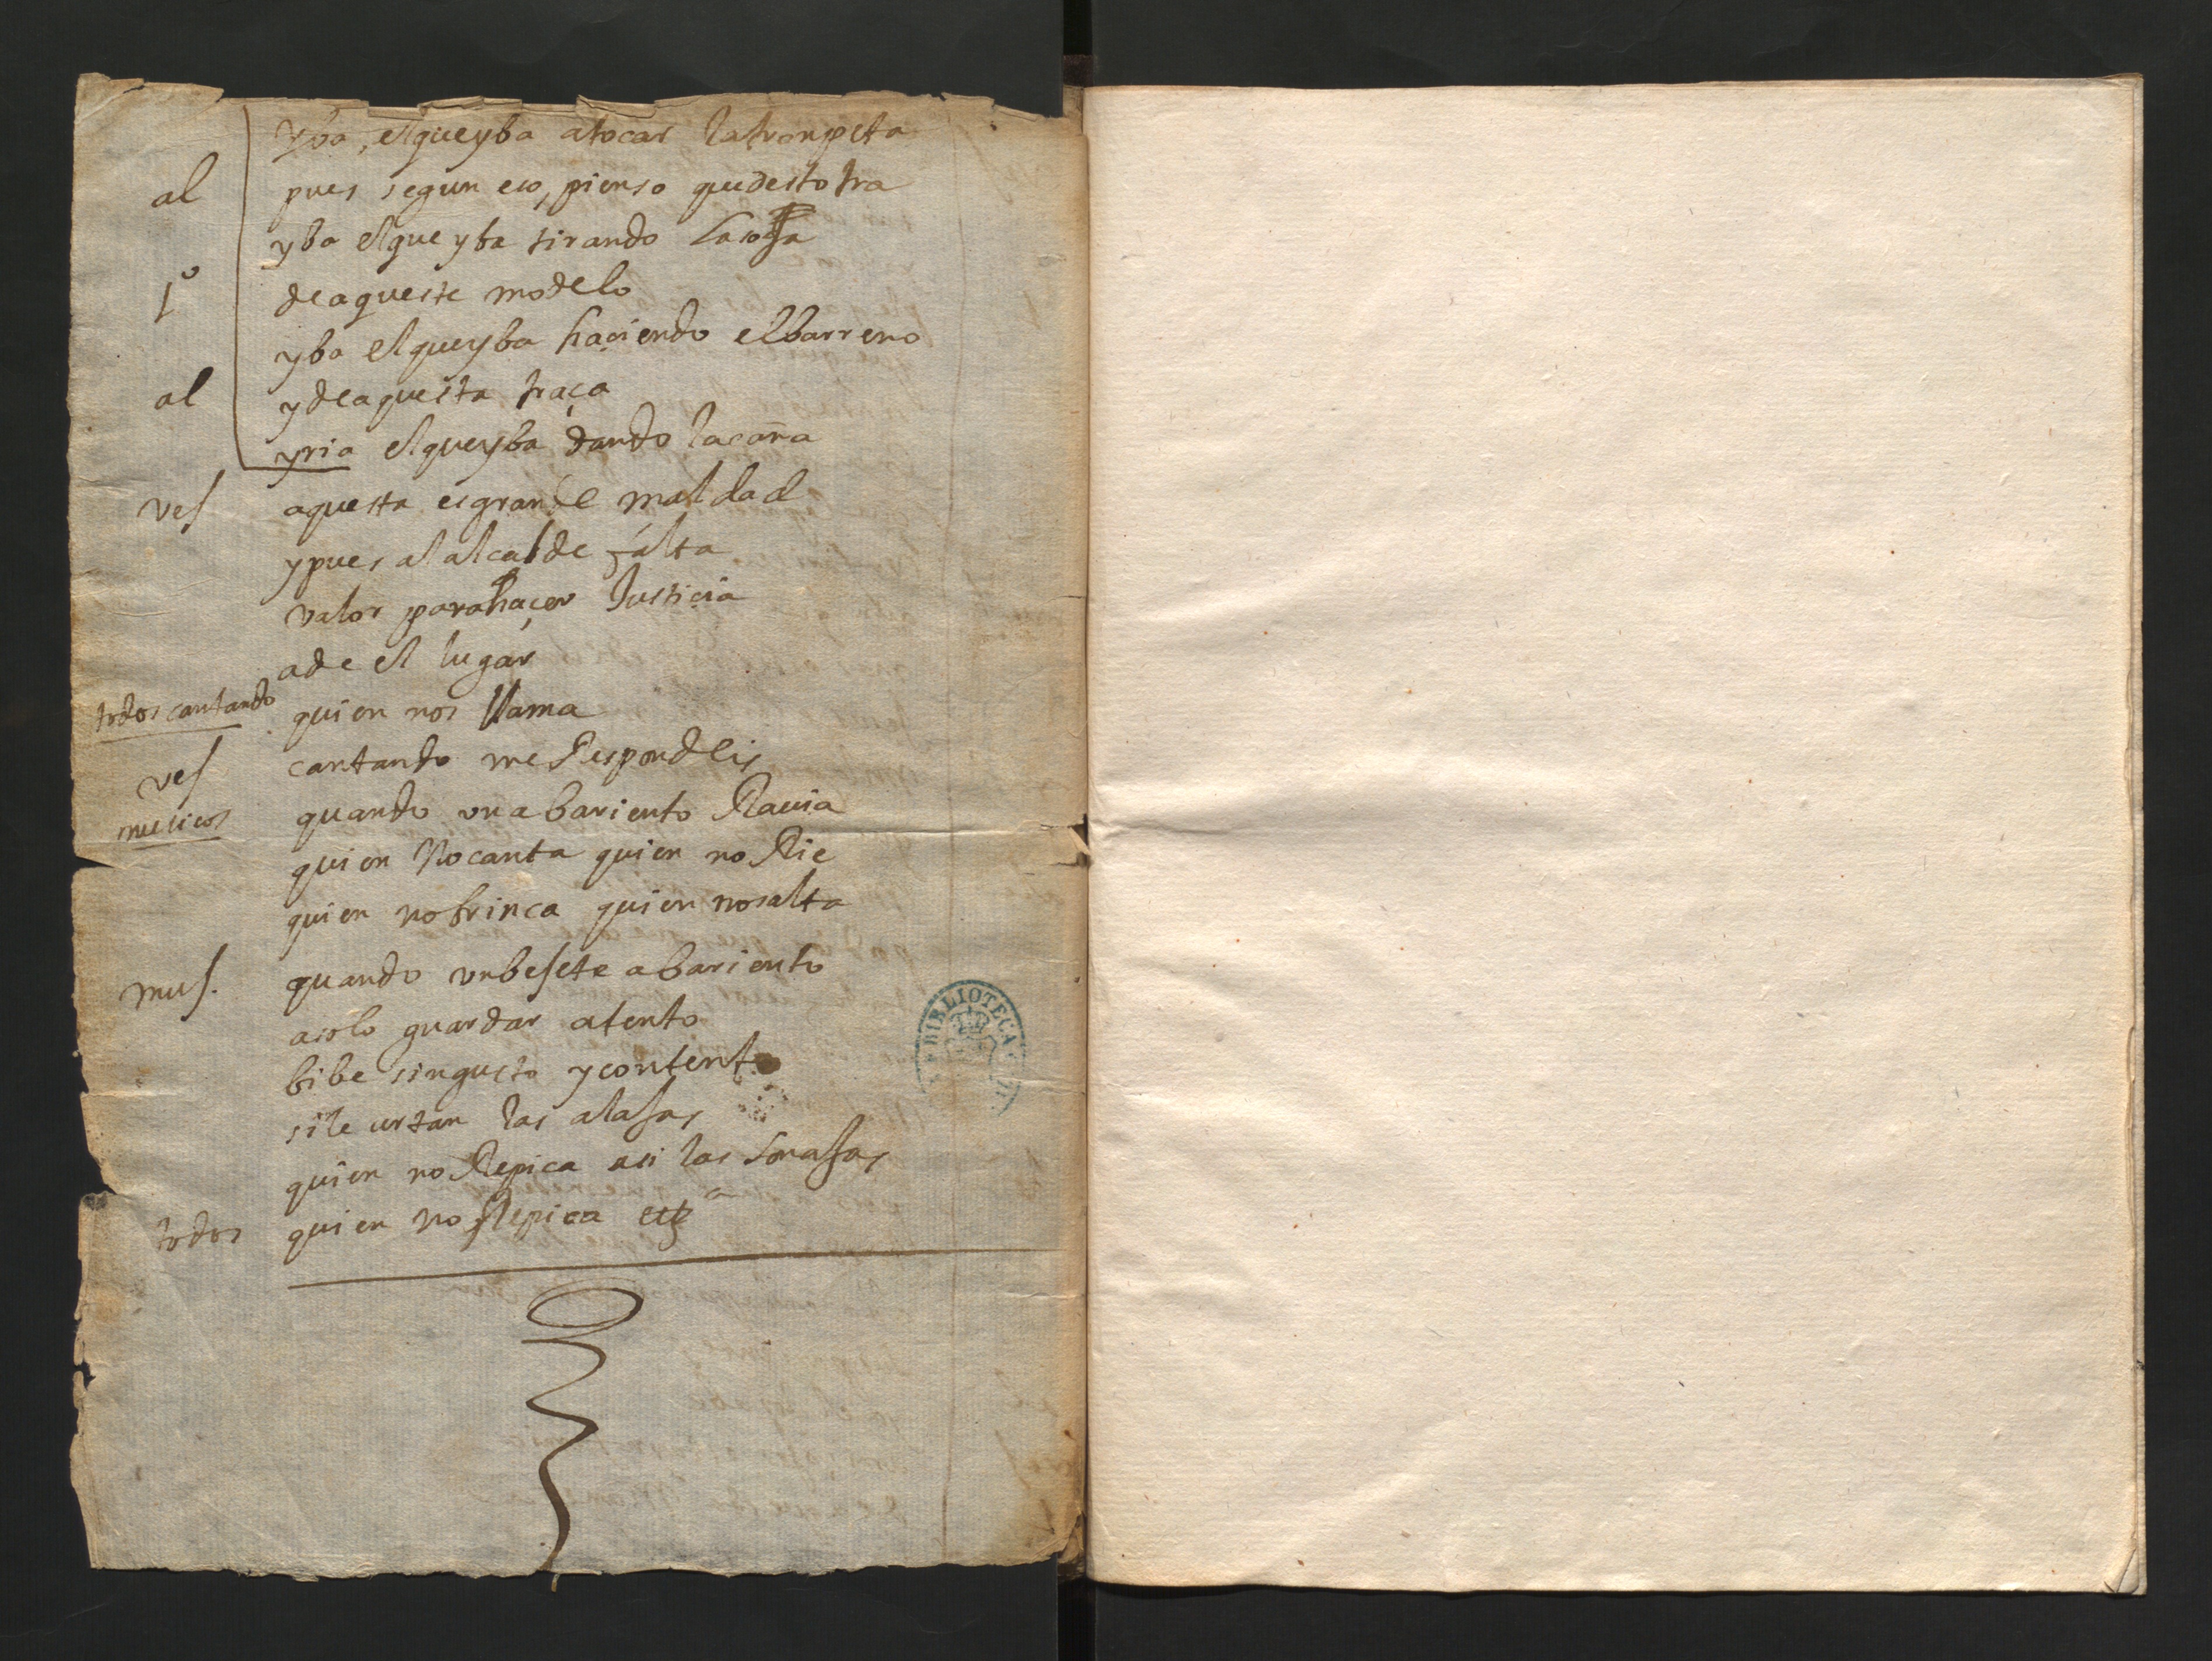 yba, elqueyba atocar latronpeta
al pues segun eso, pienso quedestotra
yba elqueyba tirando Lasoga
1º deaqueste modelo
yba elqueyba haçiendo elbarreno
al ydeaquesta traça
yria elqueyba dando lacaña
vej aquesta esgrande maldad
ypues alalcalde falta
valor parahaçer Justiçia
ade el lugar
todos cantando quien nos llama
vej cantando meRespondeis
musicos quando vnabariento Rauia
quien Nocanta quien noRie
quien nobrinca quien nosalta
mus. quando vnbejete abariento
asolo guardar atento
bibe singusto ycontento
sile urtan las alajas
quien noRepica asi las sonajas
todos quien noRepica etcª
BIBLIOTECA